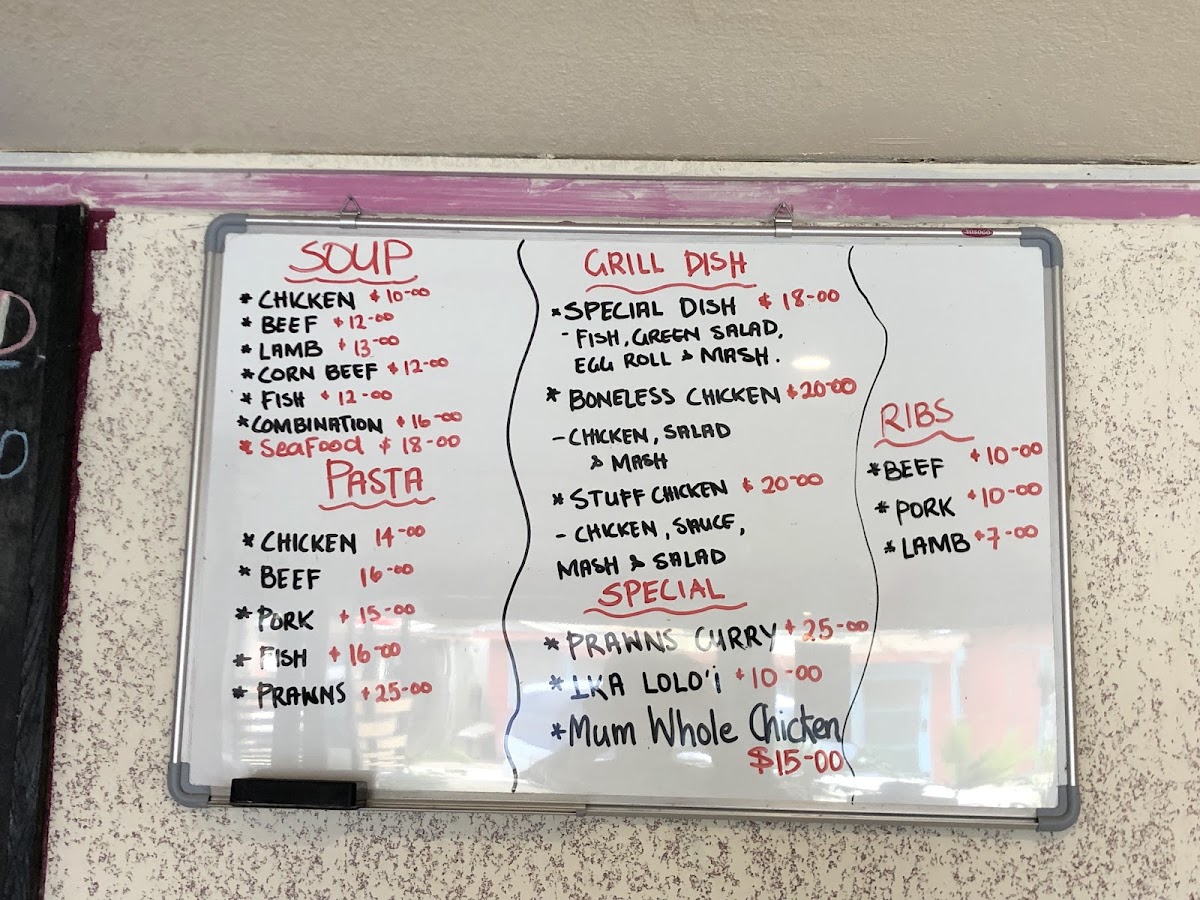 SOUP
* CHICKEN $10-00
* BEEF $12-00
* LAMB $13-00
* CORN BEEF $12-00
* FISH $12-00
* COMBINATION $16-00
* SEAFOOD $18-00
PASTA
* CHICKEN 14-00
* BEEF 16-00
* PORK $15-00
* FISH $16-00
* PRAWNS $25-00
GRILL DISH
* SPECIAL DISH $18-00
- FISH, GREEN SALAD,
EGG ROLL & MASH.
* BONELESS CHICKEN $20-00
- CHICKEN, SALAD
& MASH
* STUFF CHICKEN $20-00
- CHICKEN, SAUCE,
MASH & SALAD
SPECIAL
* PRAWNS CURRY $25-00
* IKA LOLO'i $10-00
* Mum Whole Chicken
$15-00
RIBS
* BEEF $10-00
* PORK $10-00
* LAMB $7-00